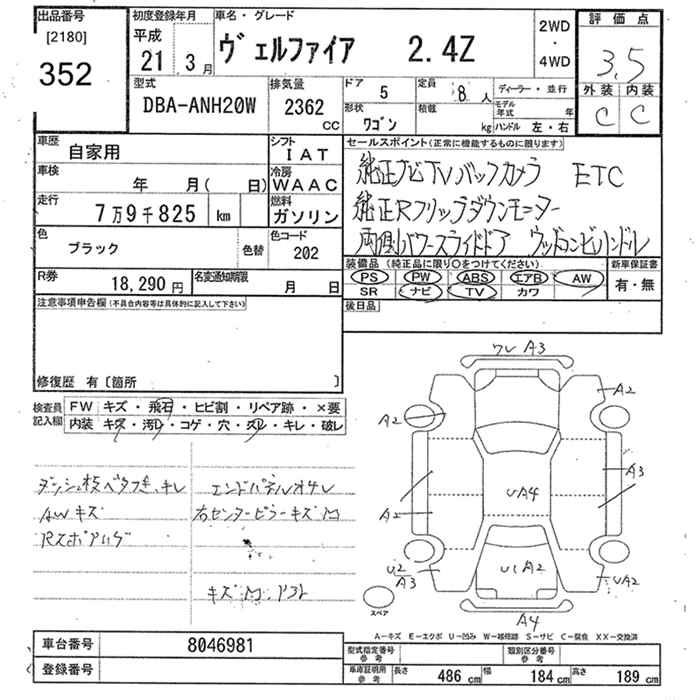 出品番号 初度登録年月 車名・グレード 評価点
[2180] 平成 2WD
352 21年3月 ヴェルファイア 2.4Z ・ 3.5
4WD
外装 内装
C C
型式 排気量 ドア 5 定員 8人 ディーラー・並行
DBA-ANH20W 2362cc 形状 ワゴン 積載 kg モデル年式 年
ハンドル 左・右
車歴 自家用 シフト IAT
車検 年 月( 日) 冷房 WAAC
走行 7万9千825 km 燃料 ガソリン
色 ブラック 色替 色コード 202
R券 18,290円 名変通知期限 月 日
セールスポイント(正常に機能するものに限ります)
純正ナビTVバックカメラ ETC
純正Rフリップダウンモニター
両側パワースライドドア ウッドコンビハンドル
装備品(純正品に限り○をつけてください) 新車保証書
PS PW ABS エアB AW 有・無
SR ナビ TV カワ
後日品
注意事項申告欄(不具合内容等は具体的に記入して下さい)
修復歴 有〔箇所 〕
検査員記入欄 FW キズ・飛石・ヒビ割・リペア跡・×要
内装 キズ・汚レ・コゲ・穴・スレ・キレ・破レ
AWキズ
エンドパネルオサレ
右センターピラーキズ
ワレ A3
A2
A2
A3
UA4
A2
U2
A3
U1 A2
UA2
A4
スペア
A-キズ E-エクボ U-凹み W-補修跡 S-サビ C-腐食 XX-交換済
車台番号 8046981
登録番号
型式指定番号 参考 類別区分番号 参考
車庫証明用 参考 長さ 486cm 幅 184cm 高さ 189cm